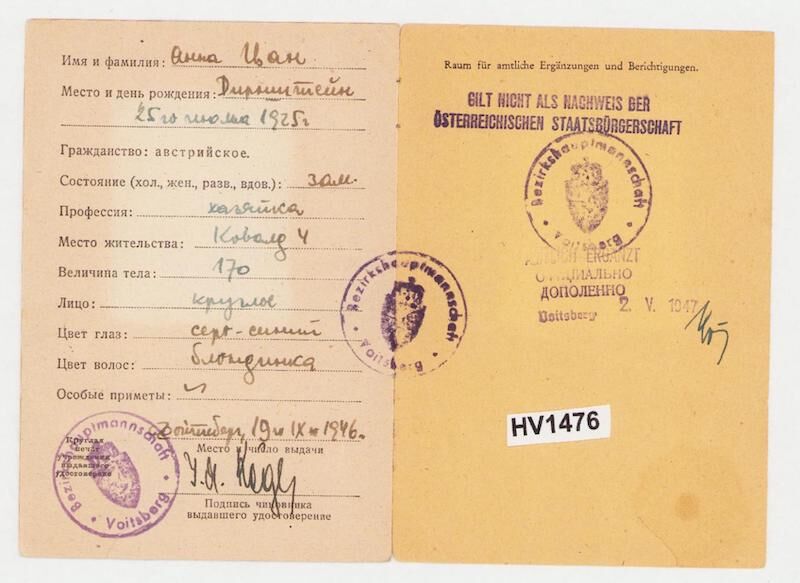 Имя и фамилия: Анна Цан
Место и день рождения: Дирнштейн
25го июля 1925г
Гражданство: австрийское.
Состояние (хол., жен., разв., вдов.): зам.
Профессия: хазяйка
Место жительства: Ковалд 4
Величина тела: 170
Лицо: круглое
Цвет глаз: серо-синий
Цвет волос: блондинка
Особые приметы:
Круглая
печать
учреждения
выдавшего
удостоверение
Войтсберг, 19 IX 1946.
Место и число выдачи
Подпись чиновника
выдавшего удостоверение
Bezirkshauptmannschaft
Voitsberg
Bezirkshauptmannschaft
Voitsberg
Raum für amtliche Ergänzungen und Berichtigungen.
GILT NICHT ALS NACHWEIS DER
ÖSTERREICHISCHEN STAATSBÜRGERSCHAFT
Bezirkshauptmannschaft
Voitsberg
AMTLICH ERGÄNZT
ОФИЦИАЛЬНО
ДОПОЛЕННО
Voitsberg 2. V. 1947
HV1476